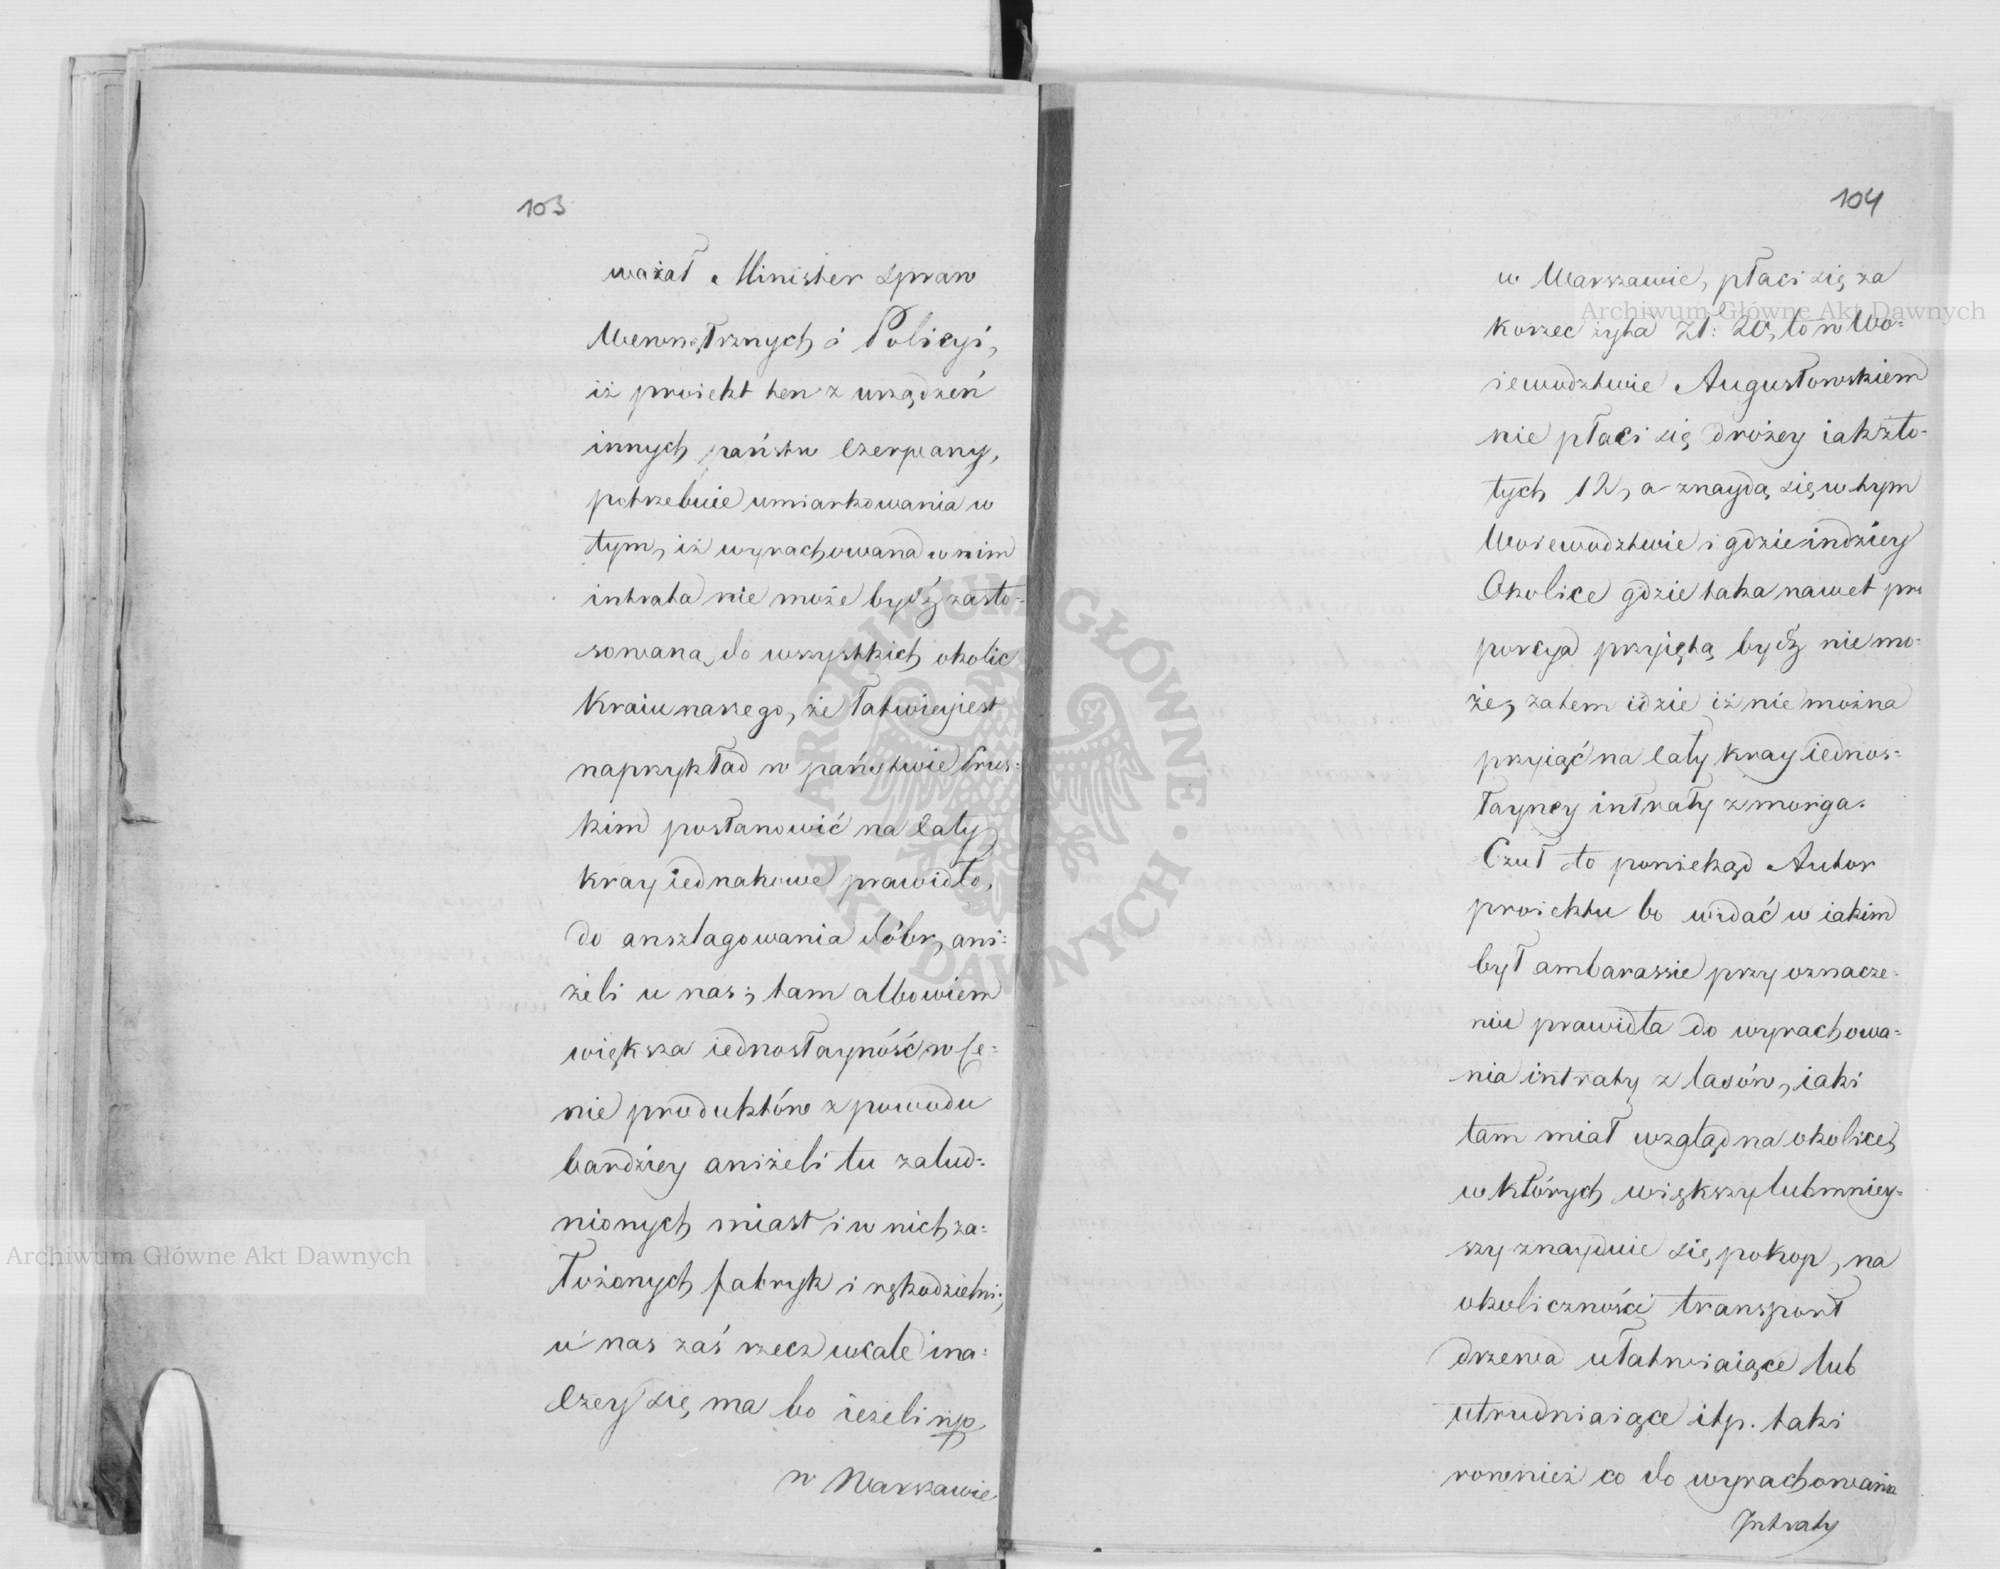 103
ważał Minister spraw
Wewnętrznych i Policyi,
iż proiekt ten z urządzeń
innych państw czerpany,
potrzebuie umiarkowania w
tym, iż wyrachowana w nim
intrata nie może bydź zasto-
sowana do wszystkich okolic
Kraiu naszego, że łatwiey iest
naprzykład w państwie Prus-
kim postanowić na cały
kray iednakowe prawidło,
do anszlagowania dóbr, ani-
żeli u nas; tam albowiem
większa iednostayność w Ce-
nie produktów z powodu
bardziey aniżeli tu zalud-
nionych miast i w nich za-
łożonych fabryk i rękodzielni;
u nas zaś rzecz wcale ina-
czey się ma bo ieżeli np
w Warszawie
104
w Warszawie, płaci się za
korzec żyta Zł: 20, to w Wo-
iewodztwie Augustowskiem
nie płaci się drożey iak zło-
tych 12, a znaydą się w tym
Woiewodztwie i gdzieindziey
Okolice gdzie taka nawet pro
porcya przyiętą bydź nie mo-
że, zatem idzie iż nie można
przyiąć na cały kray iednos-
tayney intraty z morga.
Czuł to poniekąd Autor
proiektu bo widać w iakim
był ambarassie przy oznacze-
niu prawidła do wyrachowa-
nia intraty z lasów, iaki
tam miał wzgląd na okolice,
w których większy lub mniey-
szy znayduie się pokop, na
okoliczności transport
drzewa ułatwiaiące lub
utrudniaiące itp. taki
rownież co do wyrachowania
Intraty
Archiwum Główne Akt Dawnych
Archiwum Główne Akt Dawnych
ARCHIWUM GŁÓWNE AKT DAWNYCH